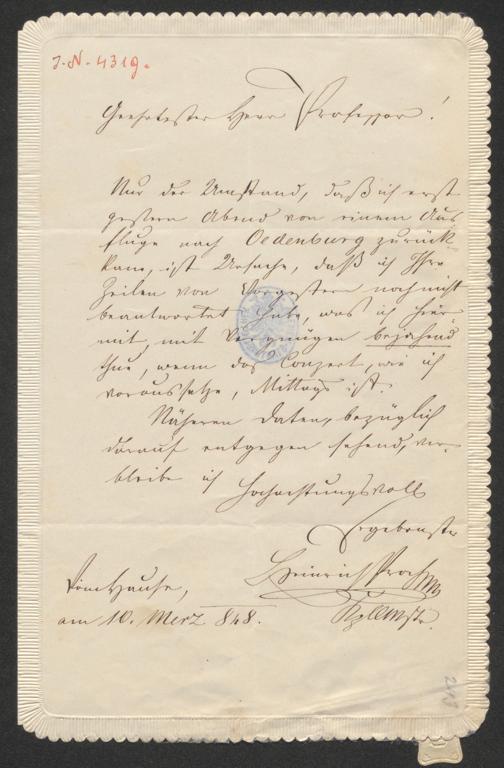 I.N. 4319.
Geehrtester Herr Professor!
Nur der Umstand, daß ich erst
gestern Abend von einem Aus
fluge nach Oedenburg zurück
kam, ist Ursache, daß ich Ihre
Zeilen von Vorgestern noch nicht
beantwortet habe, was ich hier-
mit, mit Vergnügen bejahend
thue, wenn das Conzert, wie ich
voraussetze, Mittags ist.
Näheren Daten, bezüglich
darauf entgegen sehend, ver-
bleibe ich Hochachtungsvoll
Ergebenster
Heinrich Proch
Vom Hause,
am 10. Merz 848.
243